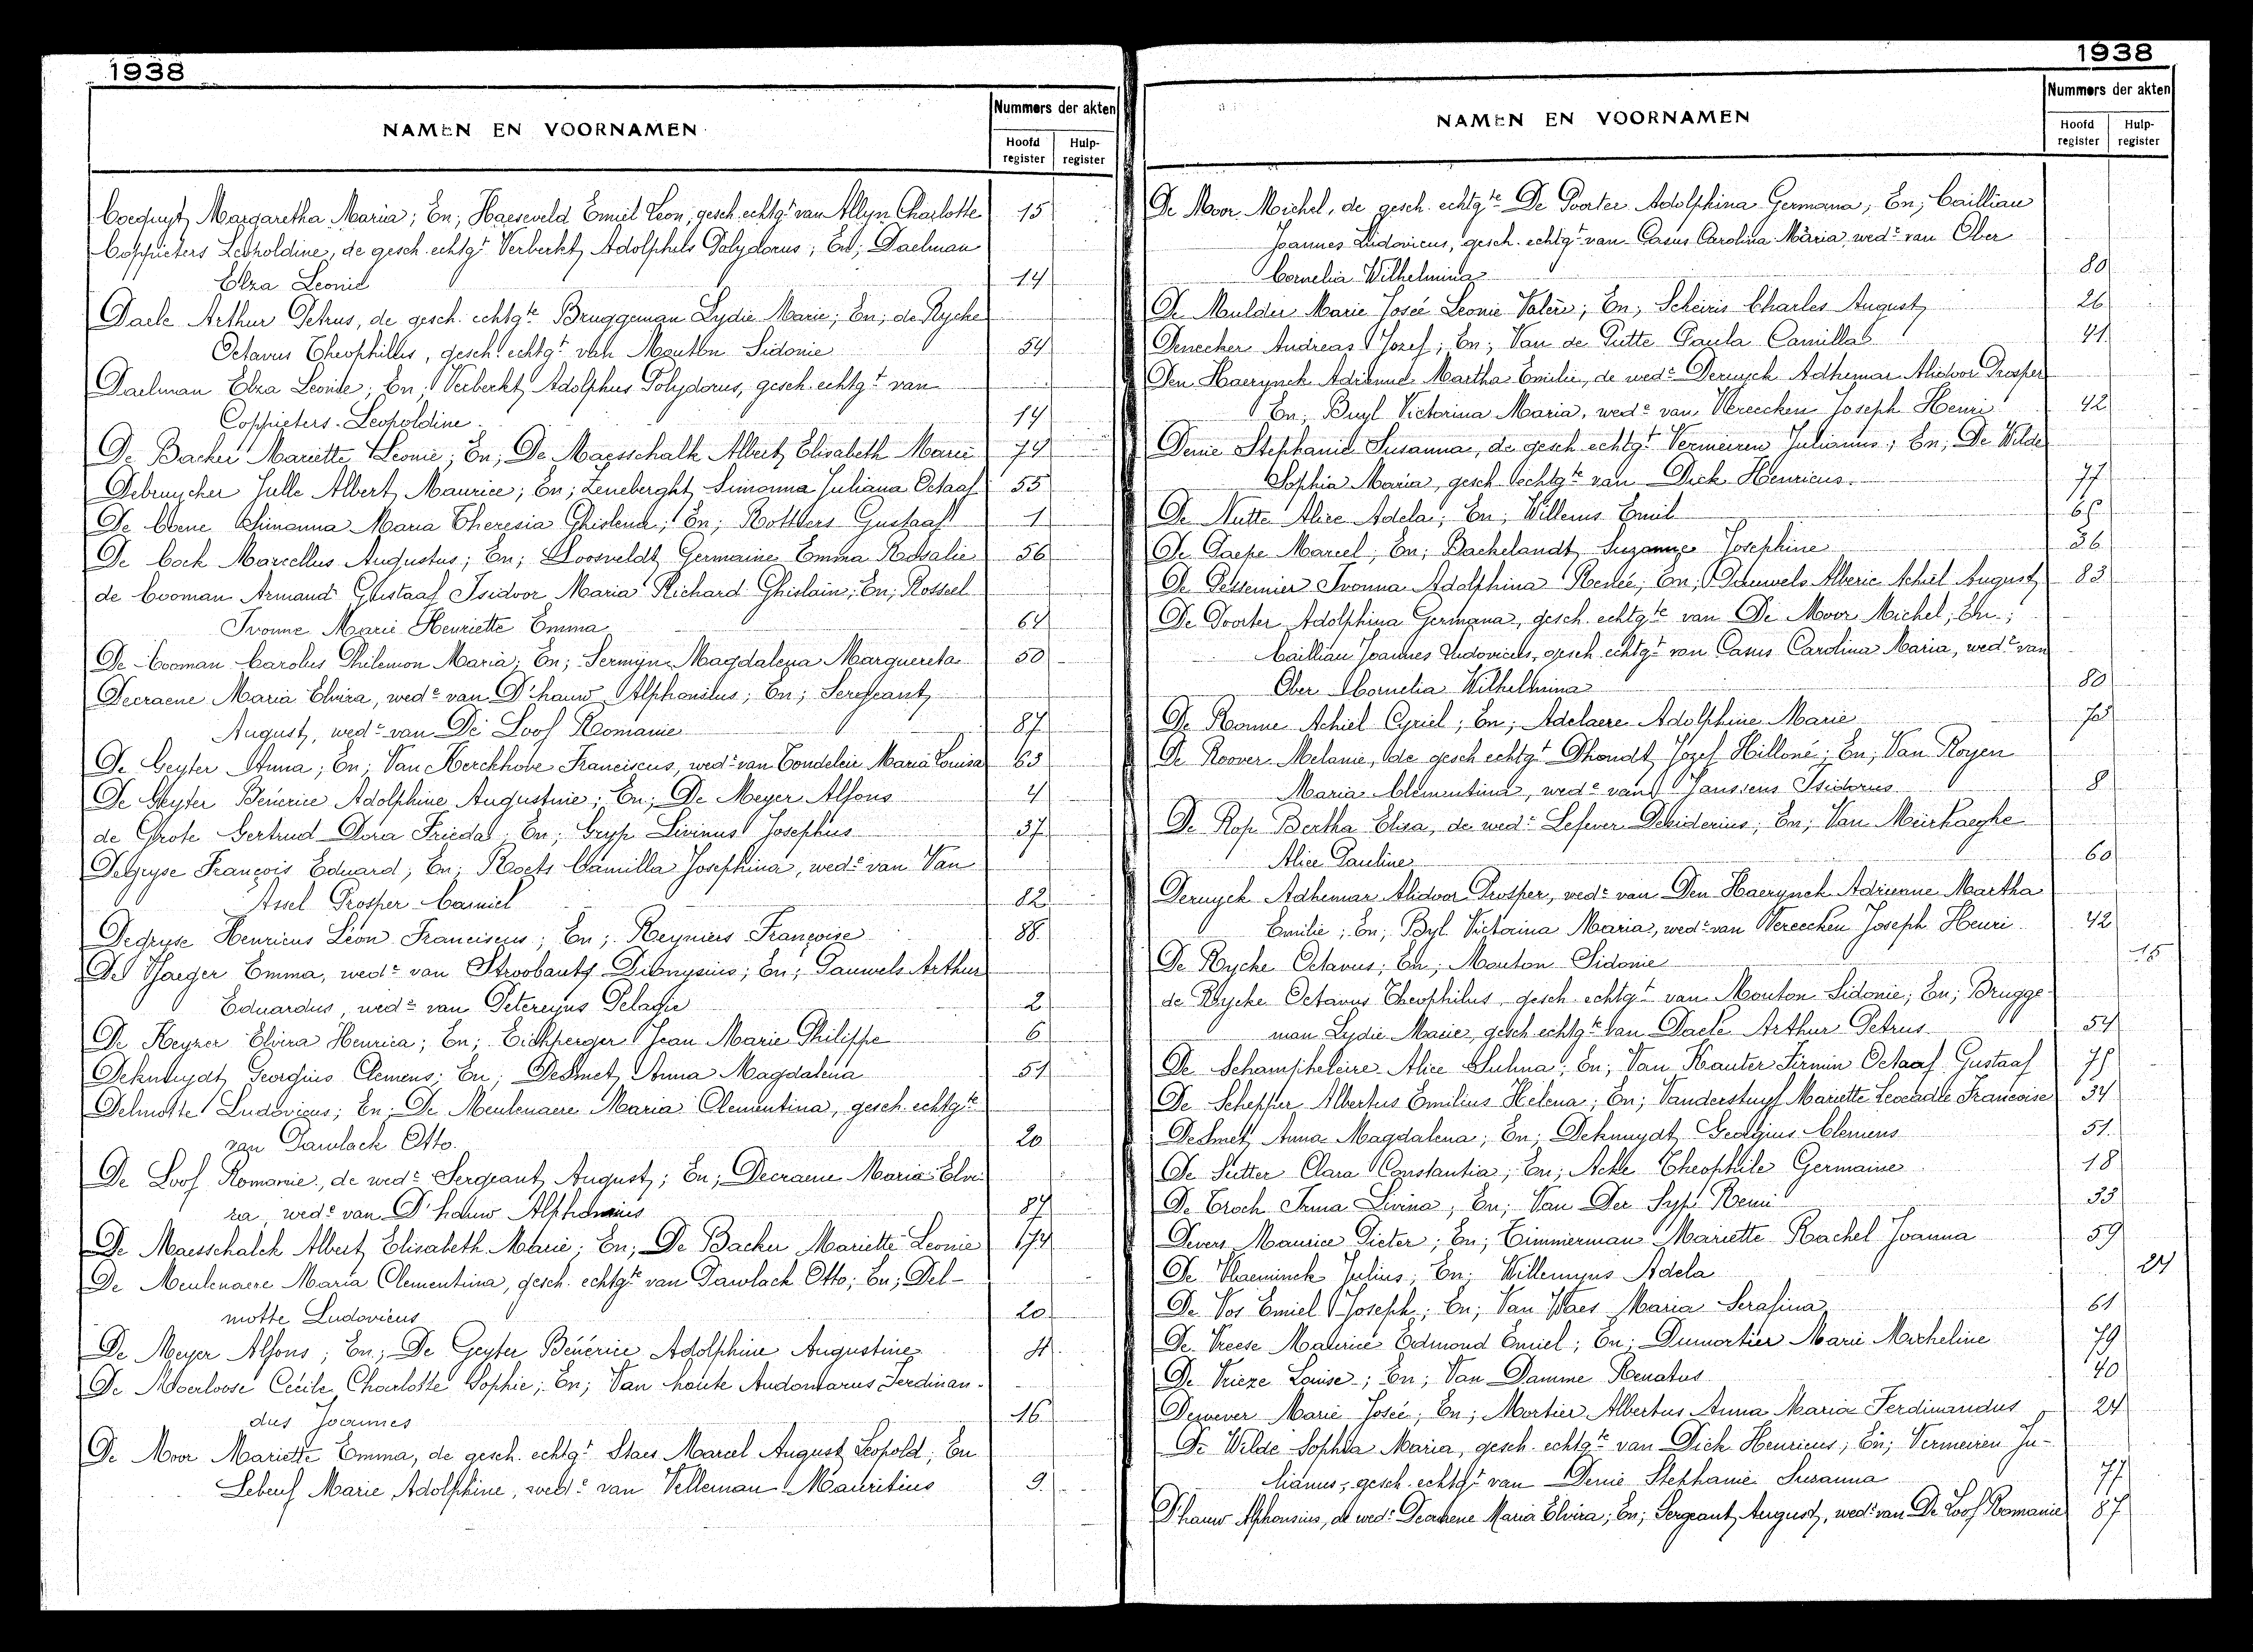 1938
NAMEN EN VOORNAMEN
Nummers der akten
Hoofd register
Hulp- register
Cocquyt Margaretha Maria; En; Haeseveld Emiel Leon, gesch. echtgt van Allyn Charlotte 15
Coppieters Leopoldine, de gesch. echtgt Verberkt Adolphus Polydorus; En; Daelman
Elza Leonie 14
Daele Arthur Petrus, de gesch. echtgte Bruggeman Lydie Marie; En; de Rycke
Octavus Theophillus, gesch. echtgt van Mouton Sidonie 54
Daelman Elza Leonie; En; Verberkt Adolphus Polydorus, gesch. echtgt van
Coppieters Leopoldine 14
De Backer Mariette Leonie; En; De Maesschalk Albert Elisabeth Marie 74
Debruycker Julle Albert Maurice; En; Zeneberght Simonna Juliana Octaaf 55
De Clene Simanna Maria Theresia Ghislena; En; Rottiers Gustaaf 1
De Cock Marcellus Augustus; En; Loosveldt Germaine Emma Rosalie 56
de Cooman Armand Gustaaf Isidoor Maria Richard Ghislain; En; Rosseel
Ivonne Marie Henriette Emma 64
De Cooman Carolus Philemon Maria; En; Sermijn Magdalena Marguereta 50
Decraene Maria Elvira, wede van D'hauw Alphonsius; En; Sergeant
August, wedr van De Loof Romanie 87
De Ceyter Anna; En; Van Kerckhove Franciscus, wedr van Condeleir Maria Louisa 63
De Geyter Benerice Adolphine Augustine; En; De Meyer Alfons 4
de Grote Gertrud Dora Frieda; En; Gryp Livinus Josephus 37
Degryse François Eduard; En; Roets Camilla Josephina, wede van Van
Assel Prosper Camiel 82
Degryse Henricus Léon Franciscus; En; Reyniers Françoise 88
De Jaeger Emma, wede van Stroobants Dionysius; En; Pauwels Arthur
Eduardus, wedr van Petereyns Pelagie 2
De Keyzer Elvira Henrica; En; Eichperger Jean Marie Philippe 6
Deknuydt Georgius Clemens; En; Desmet Anna Magdalena 51
Delmotte Ludovicus; En; De Meulenaere Maria Clementina, gesch. echtgte
van Pawlack Otto. 20
De Loof Romanie, de wede Sergeant August; En; Decraene Maria Elvi
ra, wede van D'hauw Alphonsius 87
De Maesschalck Albert Elisabeth Marie; En; De Backer Mariette Leonie 74
De Meulenaere Maria Clementina, gesch. echtgte van Pawlack Otto; En; Del-
motte Ludovicus 20
De Meyer Alfons; En; De Geyter Bénérice Adolphine Augustine 4
De Moerloose Cécile Charlotte Sophie; En; Van houte Audomarus Ferdinan-
dus Joannes 16
De Moor Mariette Emma, de gesch. echtgt Staes Marcel August Leopold; En
Lebeuf Marie Adolphine, wede van Velleman Mauritius 9.
1938
NAMEN EN VOORNAMEN
Nummers der akten
Hoofd register
Hulp- register
De Moor Michel, de gesch. echtgte De Poorter Adolphina Germana; En; Cailliau
Joannes Ludovicus, gesch. echtgt van Casus Carolina Maria, wedr van Ober
Cornelia Wilhelmina 80
De Mulder Marie Josée Leonie Valère; En; Scheiris Charles August 26
Denecker Andreas Jozef; En; Van de Putte Paula Camilla 41
Den Haerynck Adrienne Martha Emilie, de wede Deruyck Adhemar Alidoor Prosper
En; Buyl Victorina Maria, wede van Vereecken Joseph Henri 42
Denie Stephanie Susanna, de gesch. echtgt Vermeiren Julianus; En; De Wilde
Sophia Maria, gesch. echtgte van Dick Henricus 77
De Nutte Alice Adela; En; Willems Emiel 65
De Paepe Marcel; En; Bachelandt Suzanne Josephine 36
De Pessemier Ivonna Adolphina Renée; En; Pauwels Alberic Achiel August 83
De Poorter Adolphina Germana, gesch. echtgte van De Moor Michel; En;
Cailliau Joannes Ludovicus, gesch. echtgt van Casus Carolina Maria, wedr van
Ober Cornelia Wilhelmina 80
De Ronne Achiel Cyriel; En; Adelaere Adolphine Marie 75
De Roover Melanie, de gesch. echtgt Dhondt Jozef Hilloné; En; Van Royen
Maria Clementina, wede van Janssens Isidorus 8
De Rop Bertha Elisa, de wede Lefever Desiderius; En; Van Meirhaeghe
Alice Pauline 60
Deruyck Adhemar Alidoor Prosper, wedr van Den Haerynck Adrienne Martha
Emilie; En; Byl Victorina Maria, wede van Vereecken Joseph Henri 42
De Rycke Octavus; En; Mouton Sidonie 15
de Rycke Octavus Theophilus, gesch. echtgt van Mouton Sidonie; En; Brugge
man Lydie Marie, gesch. echtgte van Daele Arthur Petrus 54
De Schampheleire Alice Sulma; En; Van Hauter Firmin Octaaf Gustaaf 75
De Schepper Albertus Emilius Helena; En; Vanderstuyf Mariette Leocadie Francoise 34
Desmet Anna Magdalena; En; Deknuydt Georgius Clemens 51.
De Sutter Clara Constantia; En; Acke Theophile Germaine 18
De Troch Irma Livina; En; Van Der Sypt Remi 33
Devers Maurice Pieter; En; Timmerman Mariette Rachel Joanna 59
De Vlaeminck Julius; En; Willemyns Adela 24
De Vos Emiel Joseph; En; Van Waes Maria Serafina 61
De Vreese Maurice Edmond Emiel; En; Dumortier Marie Micheline 79
De Vrieze Louise; En; Van Damme Renatus 40
Dewever Marie Josée; En; Mortier Albertus Anna Maria Ferdinandus 24
De Wilde Sophia Maria, gesch. echtgte van Dick Henricus; En; Vermeiren Ju-
lianus, gesch. echtgt van Denie Stephanie Susanna 77
D'hauw Alphonsius, de wede Decraene Maria Elvira; En; Sergeant August, wedr van De Loof Romanie 87